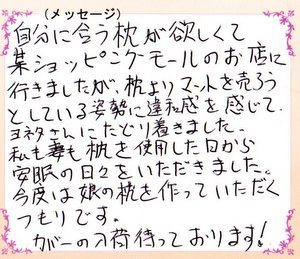 (メッセージ)
自分に合う枕が欲しくて
某ショッピングモールのお店に
行きましたが、枕よりマットを売ろう
としている姿勢に違和感を感じて、
ヨネタさんにたどり着きました。
私も妻も枕を使用した日から
安眠の日々をいただきました。
今度は娘の枕を作っていただく
つもりです。
カバーの入荷待っております!